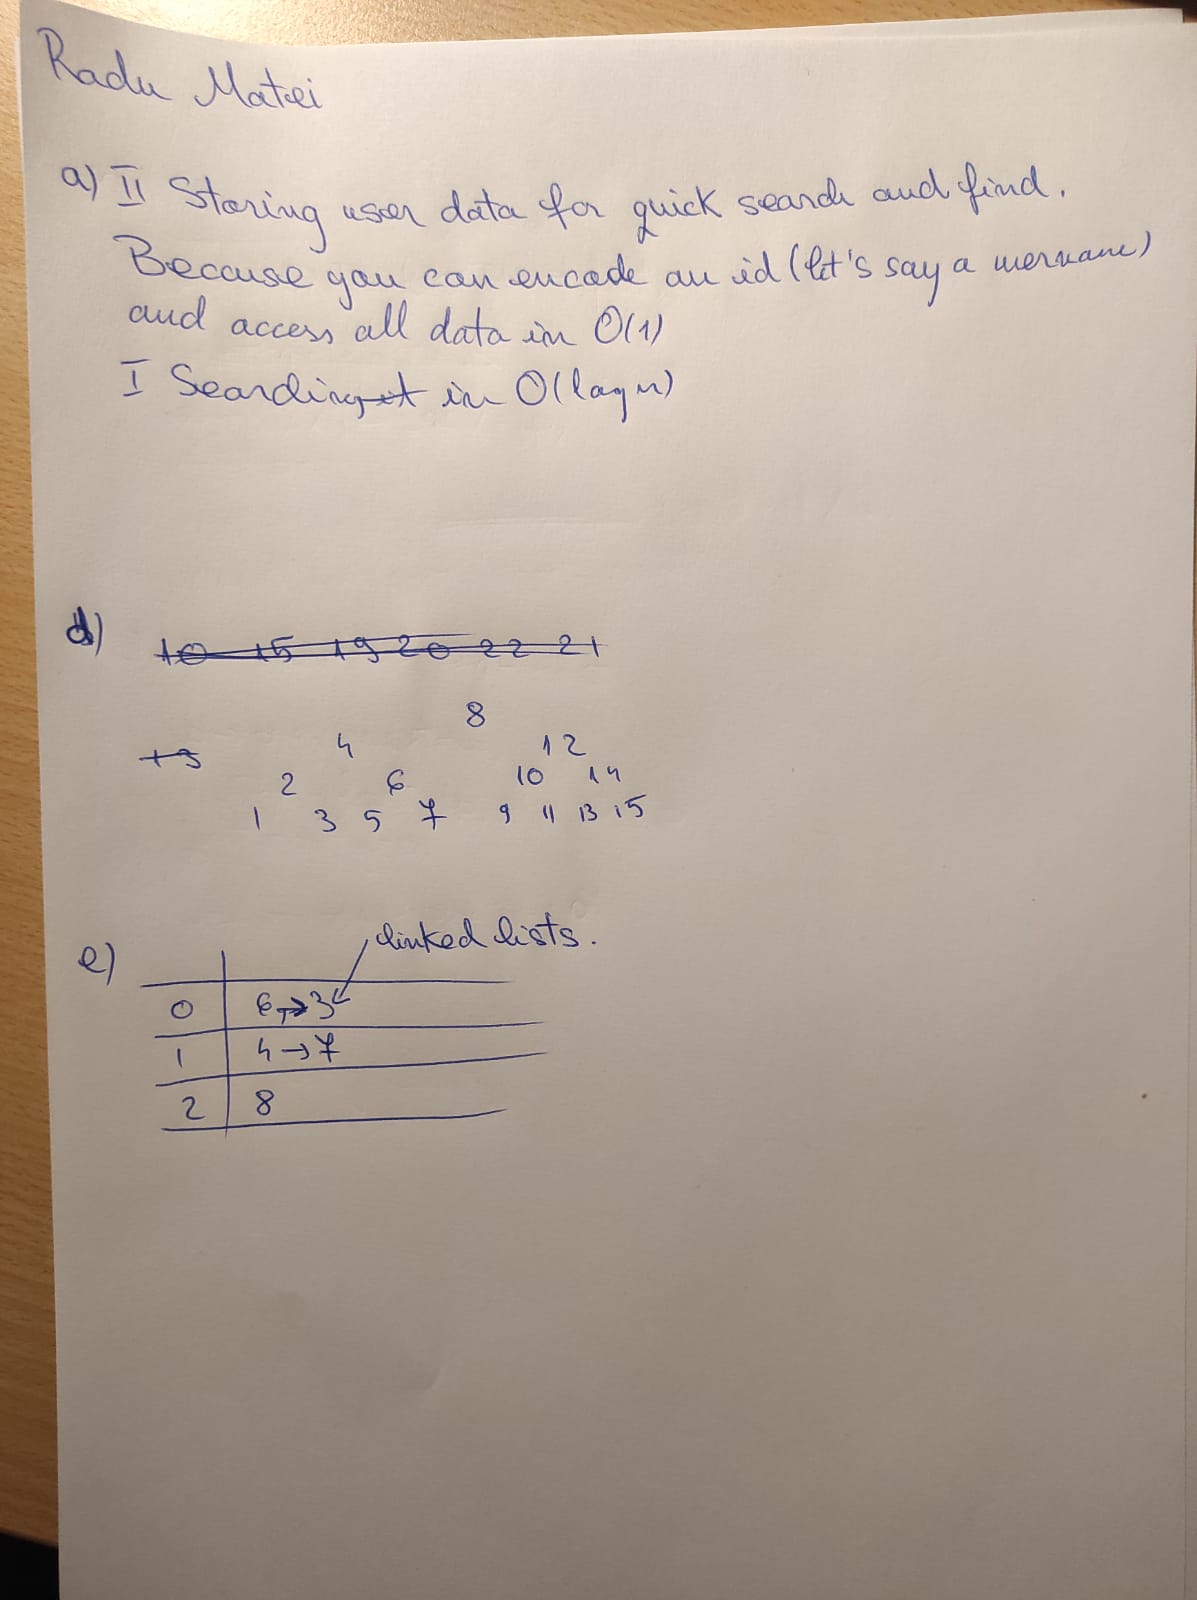 Radu Matei
a) II Storing user data for quick search and find.
Because you can encode an id (let's say a username)
and access all data in O(1)
I Searching in O(log n)
d) 10 15 19 20 22 21
8
4 12
2 6 10 14
1 3 5 7 9 11 13 15
e) linked lists.
0 6 → 3
1 4 → 7
2 8